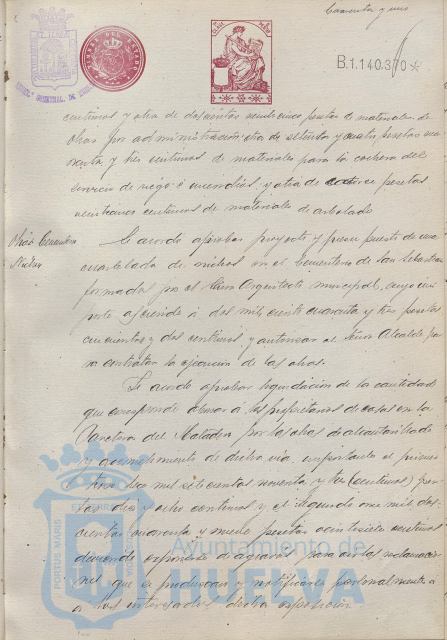 Cuarenta y uno
TIMBRE DEL ESTADO
B.1.140.370*
centimos y otra de doscientas veinticinco pesetas de materiales de
obras por administración; otra de setenta y cuatro pesetas no
venta y tres centimos de materiales para la cochera del
servicio de riego é incendios, y otra de catorce pesetas
veinticinco centimos de materiales de arbolado
Obras Cementerio
Se acordo aprobar proyecto y presupuesto de una
cuartelada de nichos en el Cementerio de San Sebastian
formados por el Señor Arquitecto municipal, cuyo im
porte asciende á dos mil ciento cuarenta y tres pesetas
cincuenta y dos centimos y autorizar al Señor Alcalde pa
ra contratar la ejecucion de las obras.
Se acordo aprobar liquidacion de la cantidad
que corresponde abonar á los propietarios de casas en la
del Matadero por las obras de alcantarillado
y acometimiento de dicha via importante el primero
mil setecientos noventa y tres pe
setas diez y ocho centimos y el segundo once mil dos
cientas cuarenta y nueve pesetas veintisiete centimos
exponerse para oir las reclamacio
nes que se produzcan y notificarse personalmente á
á los interesados dicha exposición
Ayuntamiento de
HUELVA
PORTUS MARIS